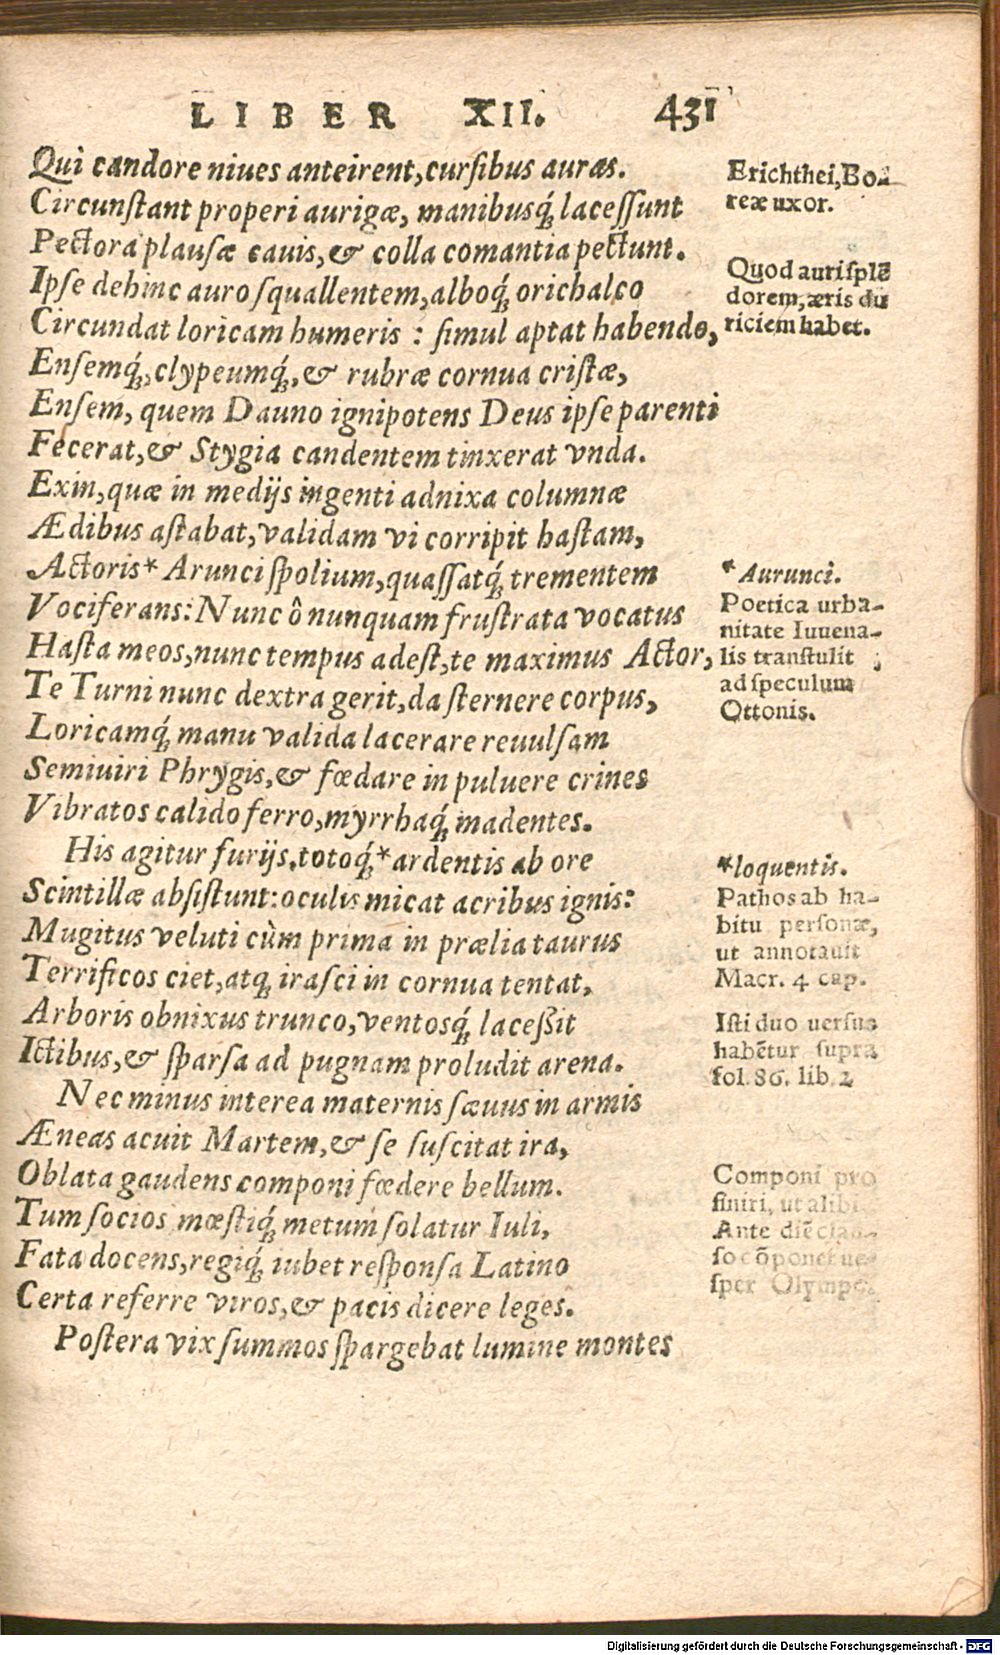 LIBER XII. 431
Qui candore niues anteirent, cursibus auras.
Circunstant properi aurigæ, manibusq́; lacessunt
Pectora plausæ cauis, & colla comantia pectunt.
Ipse dehinc auro squallentem, alboq́; orichalco
Circundat loricam humeris : simul aptat habendo,
Ensemq́;, clypeumq́;, & rubræ cornua cristæ,
Ensem, quem Dauno ignipotens Deus ipse parenti
Fecerat, & Stygia candentem tinxerat vnda.
Exin, quæ in medijs ingenti adnixa columnæ
Ædibus astabat, validam vi corripit hastam,
Actoris* Arunci spolium, quassatq́; trementem
Vociferans: Nunc ô nunquam frustrata vocatus
Hasta meos, nunc tempus adest, te maximus Actor,
Te Turni nunc dextra gerit, da sternere corpus,
Loricamq́; manu valida lacerare reuulsam
Semiuiri Phrygis, & fœdare in puluere crines
Vibratos calido ferro, myrrhaq́; madentes.
His agitur furijs, totoq́;* ardentis ab ore
Scintillæ absistunt: oculis micat acribus ignis:
Mugitus veluti cùm prima in prælia taurus
Terrificos ciet, atq; irasci in cornua tentat,
Arboris obnixus trunco, ventosq́; laceßit
Ictibus, & sparsa ad pugnam proludit arena.
Nec minus interea maternis sæuus in armis
Æneas acuit Martem, & se suscitat ira,
Oblata gaudens componi fœdere bellum.
Tum socios mœstiq́; metum solatur Iuli,
Fata docens, regiq́; iubet responsa Latino
Certa referre viros, & pacis dicere leges.
Postera vix summos spargebat lumine montes
Erichthei, Bo-
reæ uxor.
Quod auri splẽ
dorem, æris du
riciem habet.
* Aurunci.
Poetica urba-
nitate Iuuena-
lis transtulit
ad speculum
Ottonis.
*loquentis.
Pathos ab ha-
bitu personæ,
ut annotauit
Macr. 4 cap.
Isti duo uersus
habẽtur supra
fol. 86. lib. 2
Componi pro
finiri, ut alibi
Ante diẽ clau-
so cõponet ue-
sper Olympo.
Digitalisierung gefördert durch die Deutsche Forschungsgemeinschaft - DFG